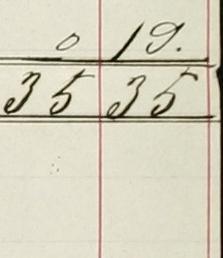 0 19.
35 35